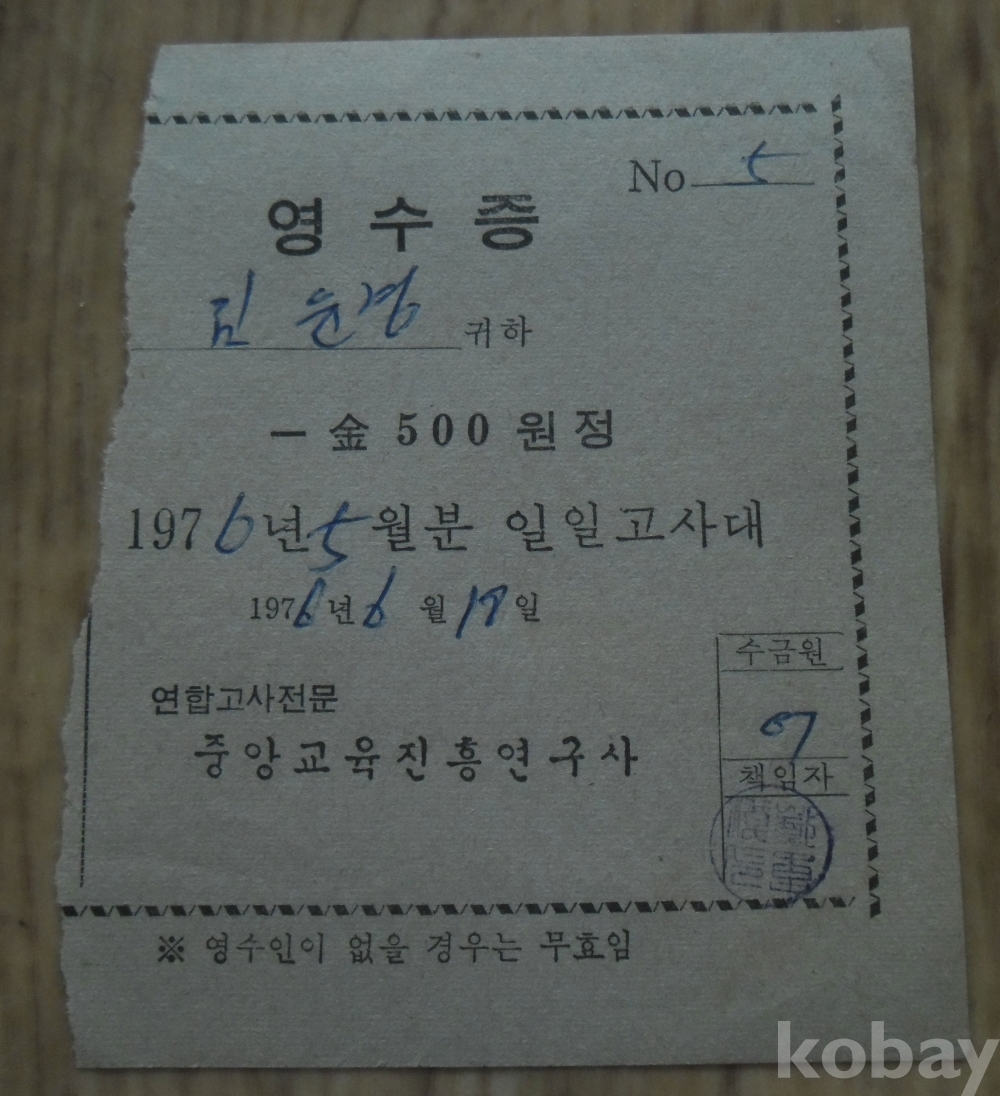 No 5
영수증
김윤경 귀하
一金 500 원정
1976년 5월분 일일고사대
1976년 6월 18일
연합고사전문
중앙교육진흥연구사
수금원
책임자
※ 영수인이 없을 경우는 무효임
kobay